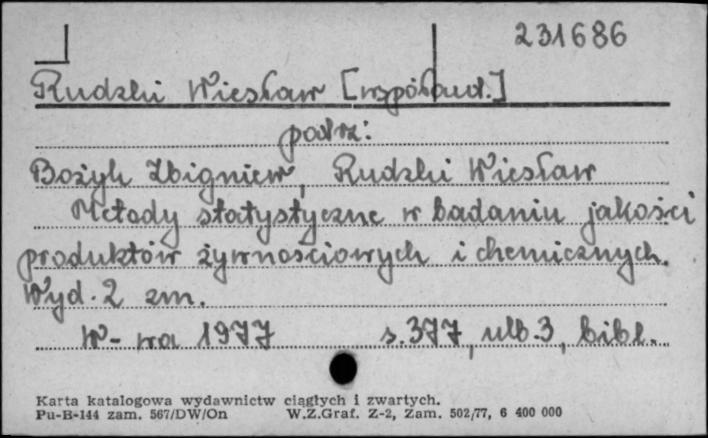 231686
Rudzki Wiesław [współaut.]
podrz:
Bożyk Zbigniew, Rudzki Wiesław
Metody statystyczne w badaniu jakości
produktów żywnościowych i chemicznych.
Wyd. 2 zm.
W-wa 1977 s.377, nlb.3, bibl.
Karta katalogowa wydawnictw ciągłych i zwartych.
Pu-B-144 zam. 567/DW/On W.Z.Graf. Z-2, Zam. 502/77, 6 400 000